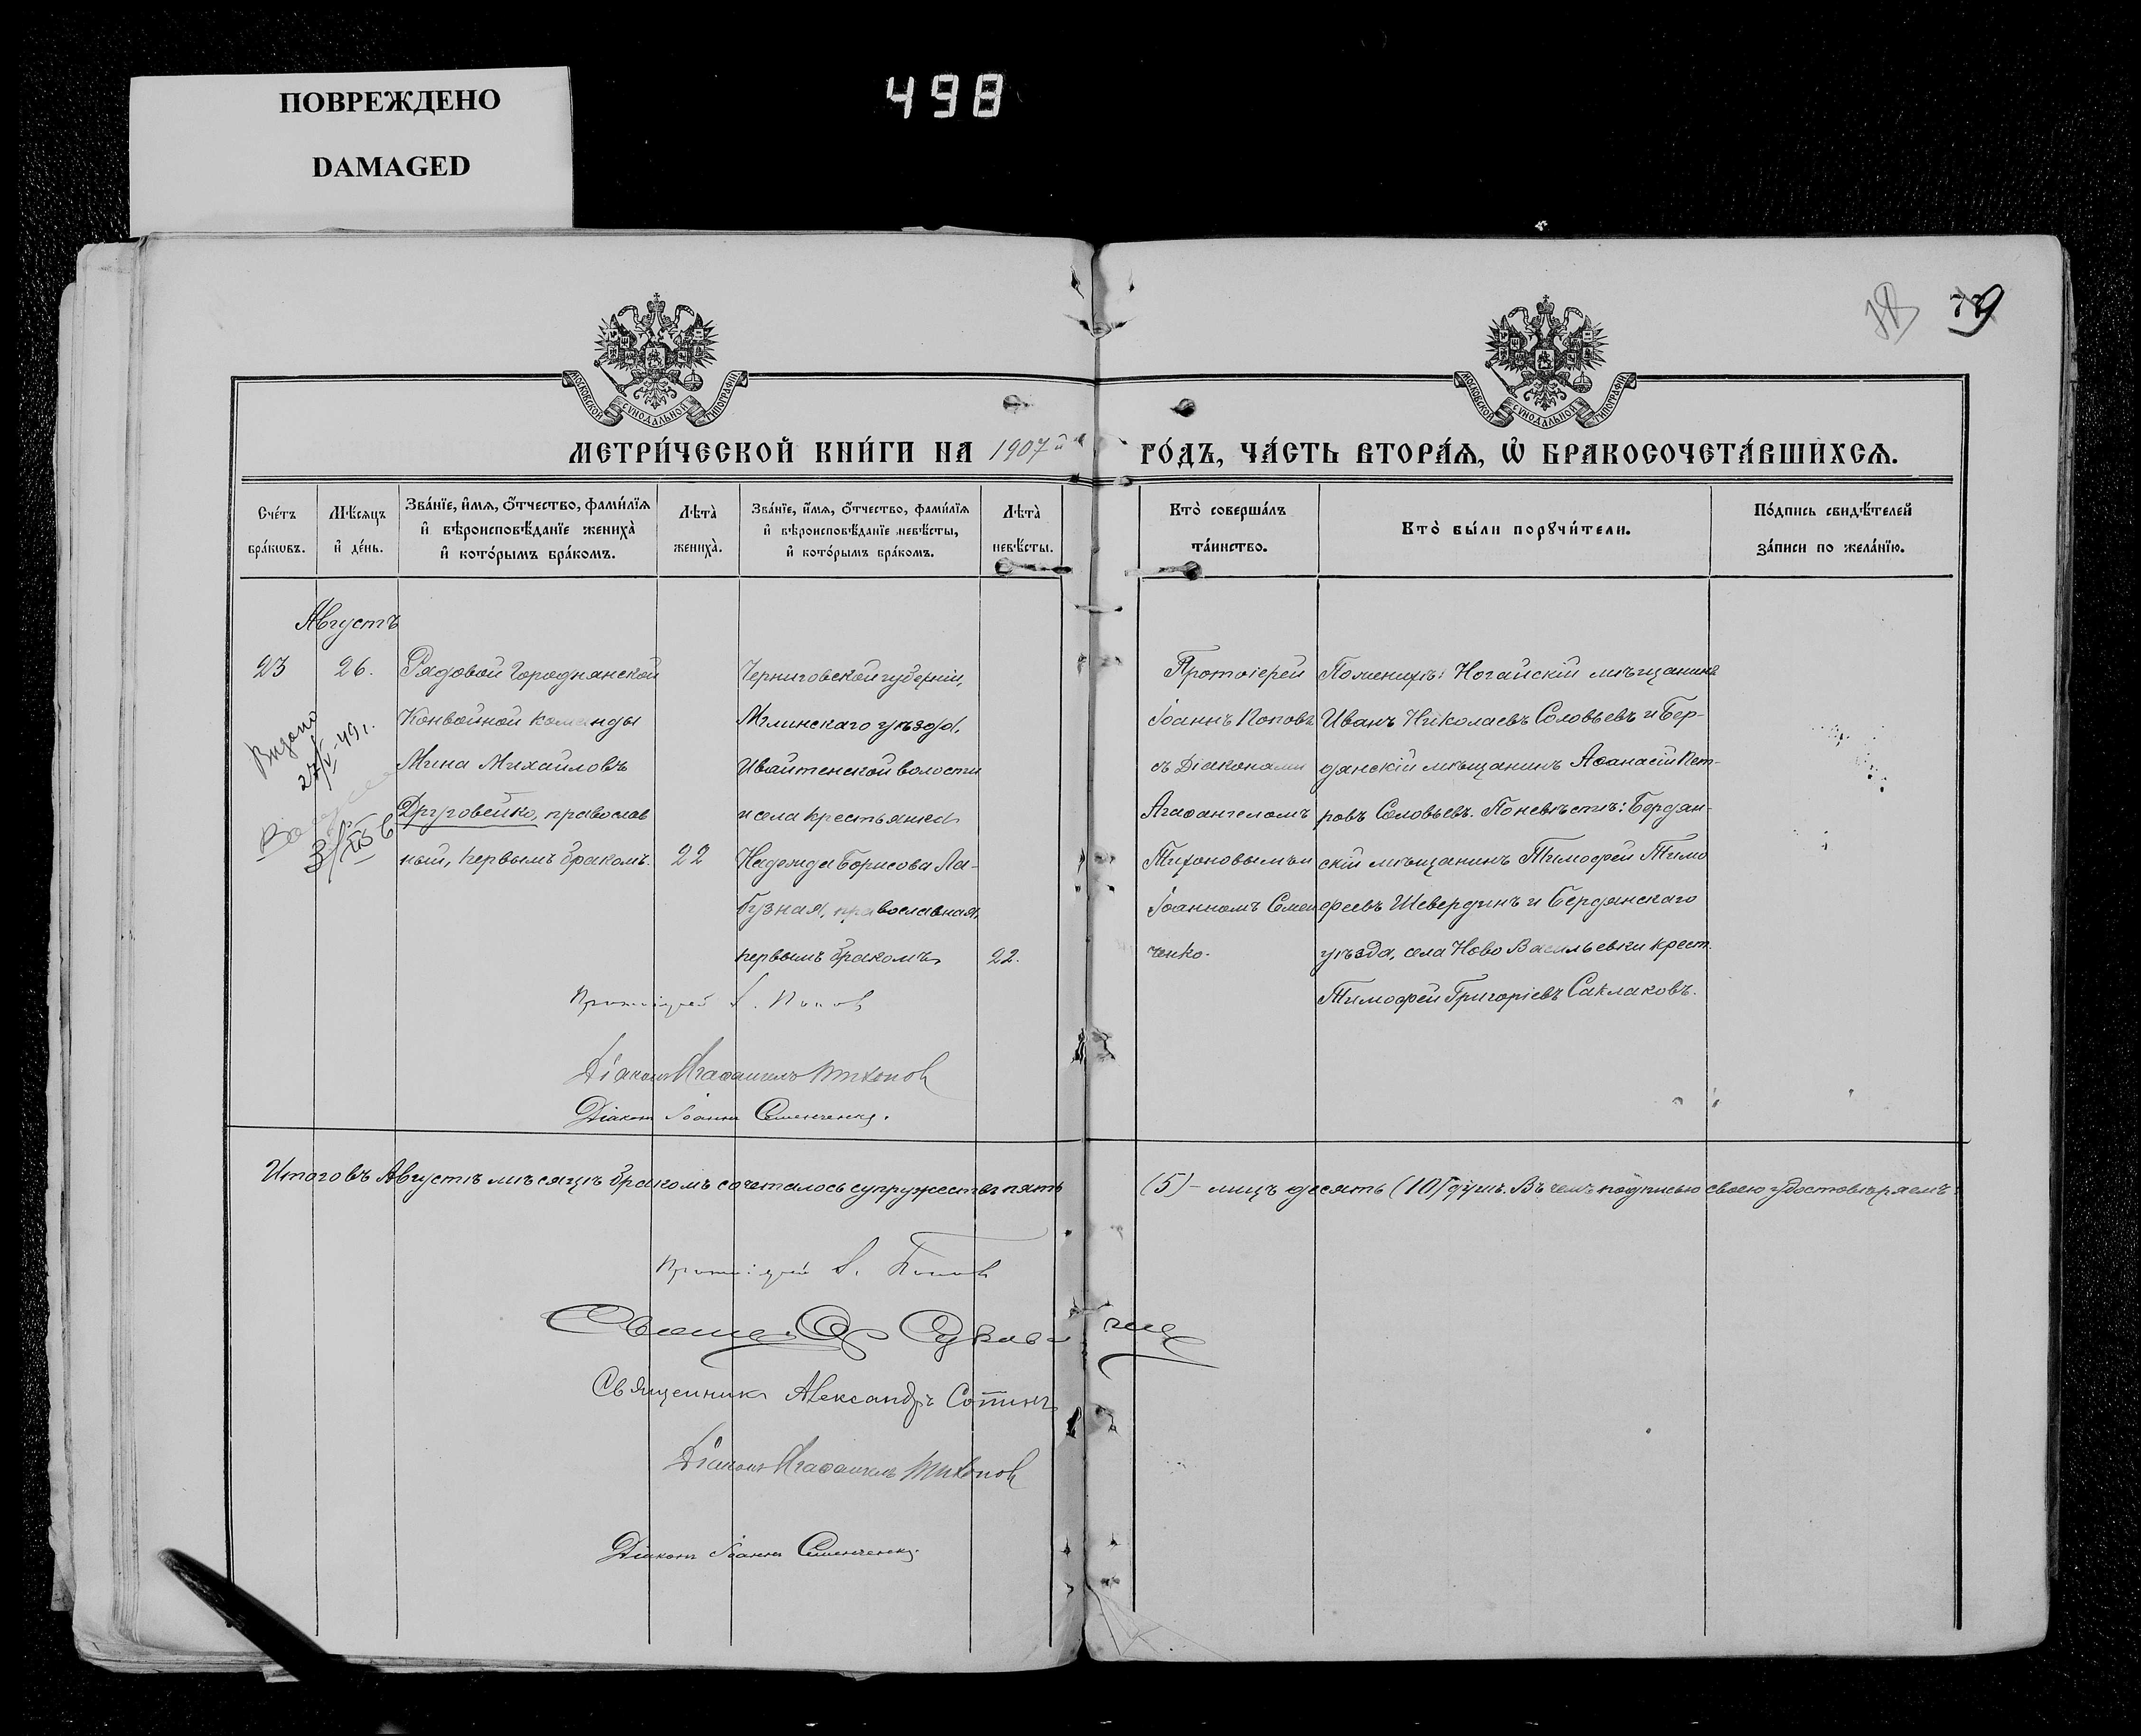 ПОВРЕЖДЕНО
DAMAGED
498
79
МОСКОВСКОЙ СѴНОДАЛЬНОЙ ТИПОГРАФІИ
МОСКОВСКОЙ СѴНОДАЛЬНОЙ ТИПОГРАФІИ
МЕТРИ́ЧЕСКОЙ КНИ́ГИ НА 1907й
ГО́ДЪ, ЧА́СТЬ ВТОРА́Ѧ, Ѡ҆ БРАКОСОЧЕТА́ВШИХСѦ.
Сче́тъ бра́кѡвъ.
Мѣ́сяцъ и҆ де́нь.
Зва́нїе, и҆́мѧ, ѻ҆́тчество, фами́лїѧ
и҆ вѣроисповѣ́данїе жениха̀
и҆ кото́рымъ бра́комъ.
Лѣта̀ жениха̀.
Зва́нїе, и҆́мѧ, ѻ҆́тчество, фами́лїѧ
и҆ вѣроисповѣ́данїе невѣ́сты,
и҆ кото́рымъ бра́комъ.
Лѣта̀ невѣ́сты.
Кто̀ соверша́лъ
та́инство.
Кто̀ бы́ли порꙋчи́тели.
По́дпись свидѣ́телей
за́писи по жела́нїю.
Августъ
23
26.
Рядовой Городнянской
Конвойной команды
Мина Михайловъ
Друговейко, православ
ный, первымъ бракомъ.
22
Черниговской губерніи,
Мглинскаго уѣзда,
Ивайтенской волости
и села крестьянка
Надежда Борисова Ла-
бузная, православная,
первымъ бракомъ
22.
Протоіерей
Іоаннъ Поповъ
съ Діаконами
Агаѳангеломъ
Тихоновымъ и
Іоанномъ Семен
ченко.
По женихѣ: Ногайскій мѣщанинъ
Иванъ Николаевъ Соловьевъ и Бер-
дянскій мѣщанинъ Аѳанасій Пет-
ровъ Соловьевъ. По невѣстѣ: Бердян-
скій мѣщанинъ Тимофей Тимо
феевъ Шевердинъ и Бердянскаго
уѣзда, села Ново Васильевки крест.
Тимофей Григоріевъ Саклаковъ.
Видано
27/V-49 г.
Протоіерей І. Попов
Діаконъ Агаѳангелъ Тихонов
Діаконъ Іоаннъ Семенченко.
Итого въ Августѣ мѣсяцѣ бракомъ сочеталось супружествъ пять
(5) - лицъ десять (10) душъ. Въ чемъ подписью своею удостовѣряемъ:
Протоіерей І. Попов
Священникъ Александръ Сотинъ
Діаконъ Агаѳангелъ Тихонов
Діаконъ Іоаннъ Семенченко.